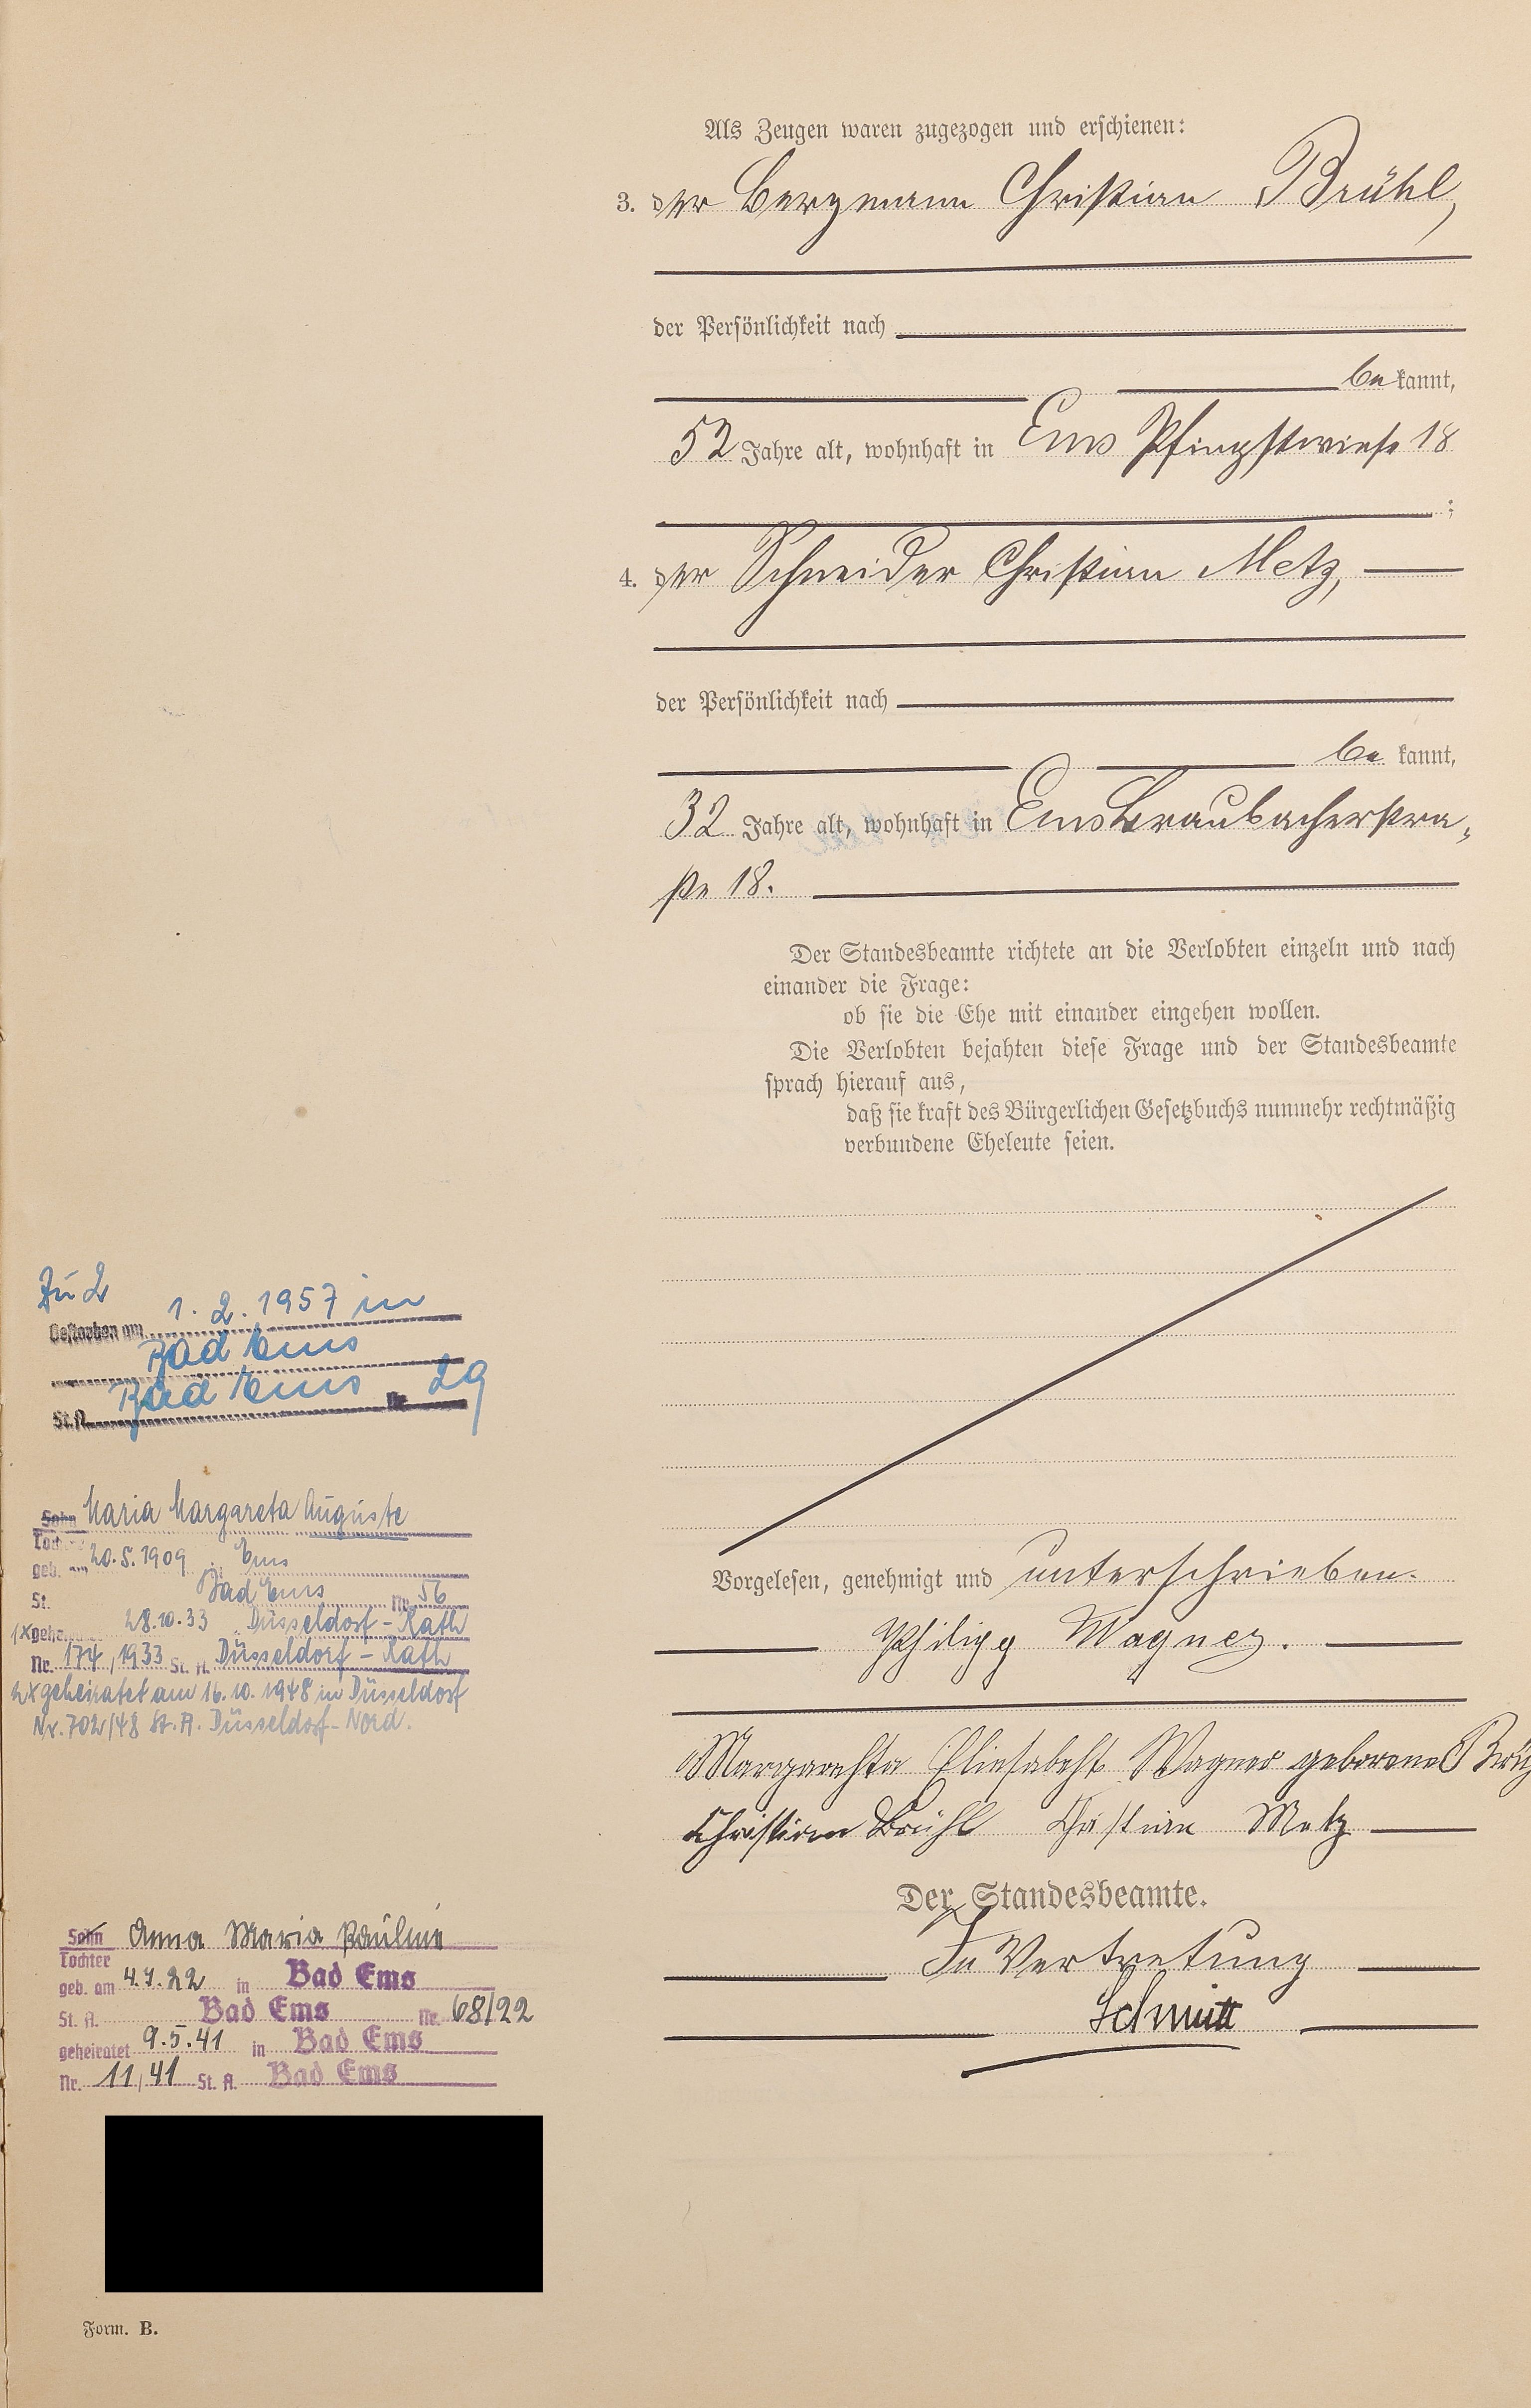 Als Zeugen waren zugezogen und erschienen:
3. der Bergmann Christian Brühl,
der Persönlichkeit nach
be kannt,
52 Jahre alt, wohnhaft in Ems Pfingstwiese 18
;
4. der Schneider Christian Metz,
der Persönlichkeit nach
be kannt,
32 Jahre alt, wohnhaft in Ems Braubacherstra-
ße 18.
Der Standesbeamte richtete an die Verlobten einzeln und nach
einander die Frage:
ob sie die Ehe mit einander eingehen wollen.
Die Verlobten bejahten diese Frage und der Standesbeamte
sprach hierauf aus,
daß sie kraft des Bürgerlichen Gesetzbuchs nunmehr rechtmäßig
verbundene Eheleute seien.
Vorgelesen, genehmigt und unterschrieben.
Philipp Wagner.
Margarehta Eliesabeht Wagner geborene Brüh
Christian Brühl Christian Metz
Der Standesbeamte.
In Vertretung
Schmitt
Zu 2
Gestorben am 1. 2. 1957 in
Bad Ems
St. A. Bad Ems Nr. 29
Sohn Maria Margareta Auguste
Tochter
geb. am 20.5.1909 Ems
St. Bad Ems Nr. 56
1x gehei 28.10.33 Düsseldorf-Rath
Nr. 174/1933 St. A. Düsseldorf-Rath
2x geheiratet am 16.10.1948 in Düsseldorf
Nr. 702/48 St. A. Düsseldorf-Nord.
Sohn Anna Maria Pauline
Tochter
geb. am 4.4.22 in Bad Ems
St. A. Bad Ems Nr. 68/22
geheiratet 9.5.41 in Bad Ems
Nr. 11/41 St. A. Bad Ems
Form. B.